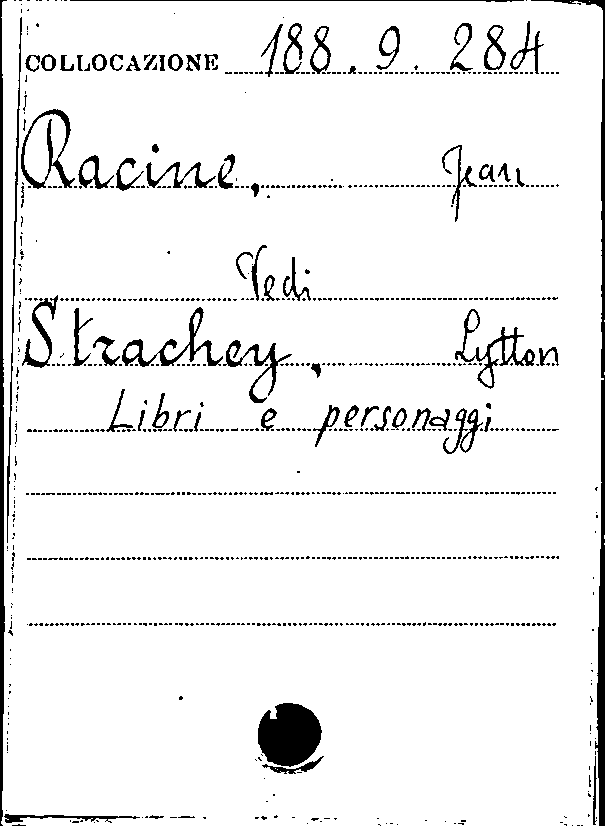 COLLOCAZIONE 188.9.284
Racine, Jean
Vedi
Strachey, Lytton
Libri e personaggi